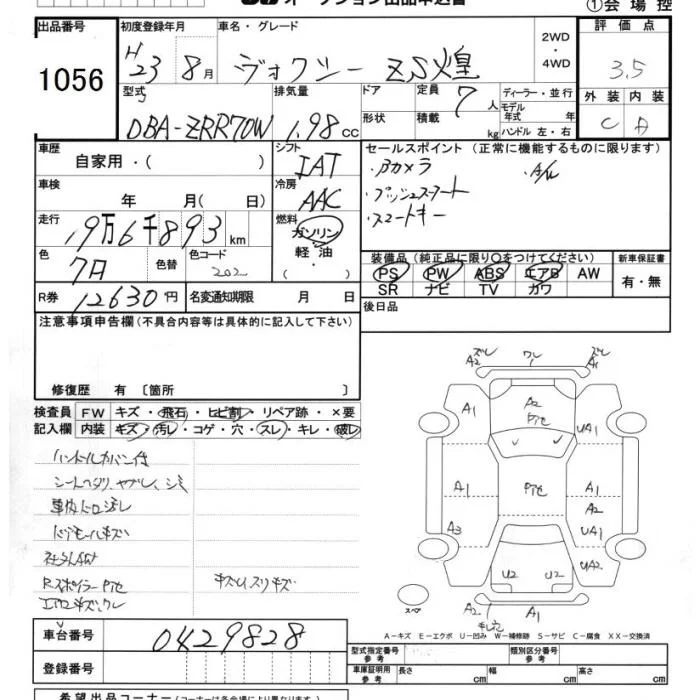 オークション出品申込書
①会場控
出品番号 初度登録年月 車名・グレード 2WD・4WD 評価点
1056 H23 8月 ヴォクシー ZS煌 3.5
外装 内装
C A
型式 排気量 ドア 定員 7人 ディーラー・並行
形状 積載 kg モデル年式 年式
ハンドル 左・右
DBA-ZRR70W 1.98cc
車歴 自家用・( )
シフト IAT
セールスポイント (正常に機能するものに限ります)
・Bカメラ ・A/W
・プッシュスタート
・スマートキー
車検 年 月( 日)
冷房 AAC
走行 19万6千893km
燃料 ガソリン・軽油・
色 クロ 色替 色コード 202
装備品 (純正品に限り○をつけてください) 新車保証書
PS PW ABS エアB AW
SR ナビ TV カワ
有・無
R券 12630円 名変通知期限 月 日
後日品
注意事項申告欄 (不具合内容等は具体的に記入して下さい)
修復歴 有 〔箇所 〕
検査員記入欄 FW キズ・飛石・ヒビ割・リペア跡・×要
内装 キズ・汚レ・コゲ・穴・スレ・キレ・破レ
ハンドルカバー付
シートヘタリ、ヤブレ、シミ
車内ドロ汚レ
ドアモールキズ
社外AW
RスポイラーPハゲ キズU、スリキズ
エアロキズ、ワレ
ズレ ワレ ズレ
A1 A2 UA1
A1 A1
A2
A3 UA1
U2 U2 UA2
スペア
A2 A1
A-キズ E-エクボ U-凹み W-補修跡 S-サビ C-腐食 XX-交換済
車台番号 0429828
型式指定番号 参考 類別区分番号 参考
登録番号
車庫証明用 参考 長さ cm 幅 cm 高さ cm
希望出品コーナー (コーナーは各会場により異なります)